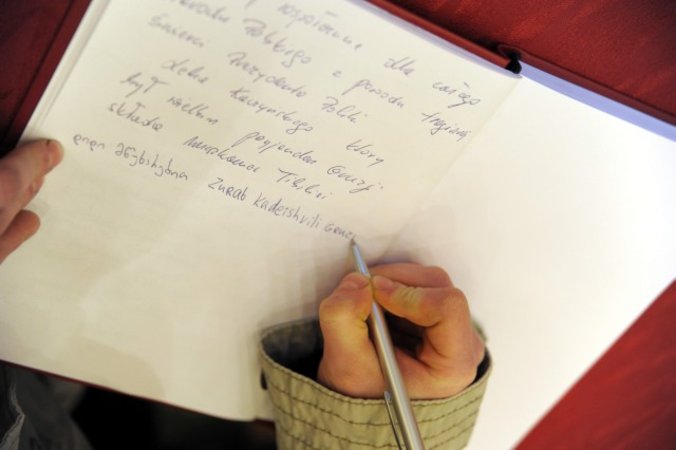 współczucie dla całego
Narodu Polskiego z powodu tragicznej
śmierci Prezydenta Polski
Lecha Kaczyńskiego który
był wielkim przyjacielem Gruzji
składa mieszkaniec Tbilisi
დიდი Zurab Kadeishvili Gruz